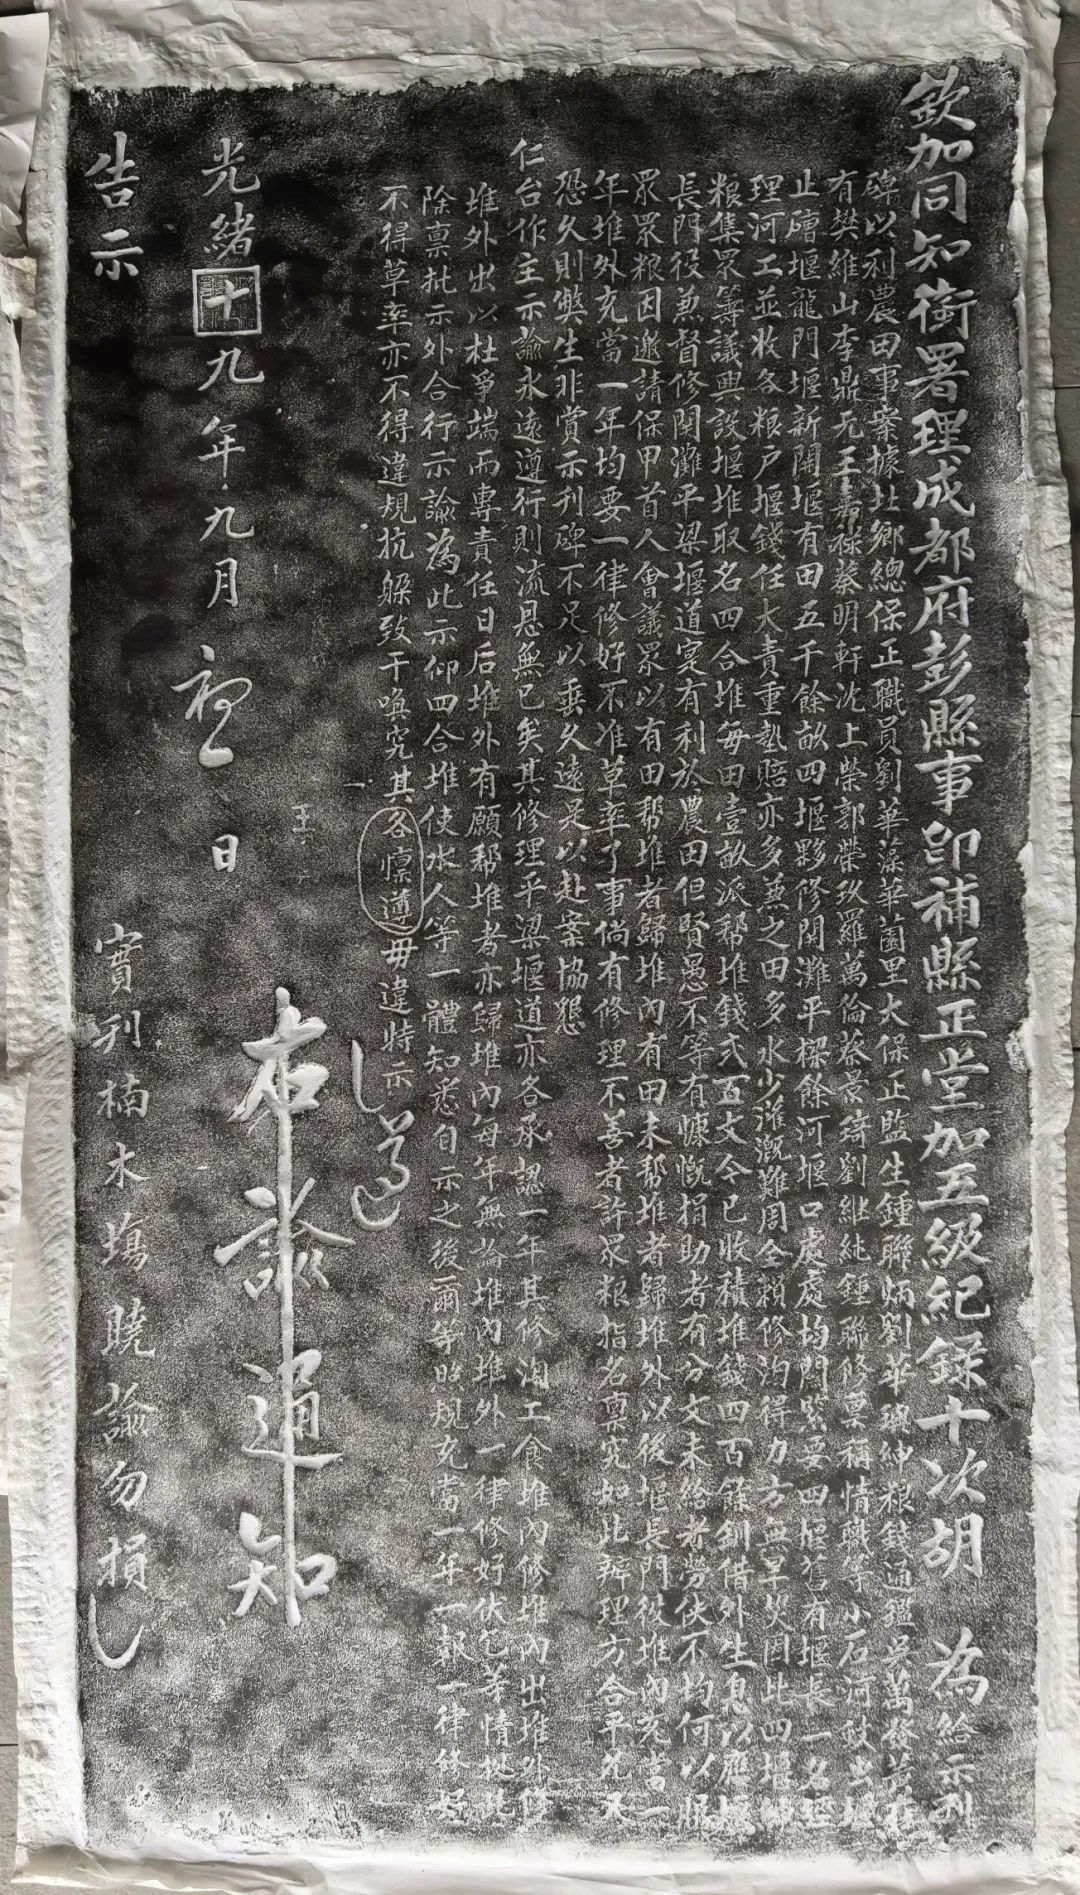 欽加同知銜署理成都府彭縣事即補縣正堂加五級紀錄十次胡 為給示刊
碑以利農田事案據北鄉總保正職員劉華藻華園里大保正監生鍾聯炳劉華興紳粮錢通鑑吳萬發黃
有樊維山李鼎元王嘉祿蔡明軒沈上榮郭榮級羅萬倫蔡蒙錡劉継純鍾聯修禀稱情職等小石河
止礄堰龍門堰新開堰有田五千餘畝四堰夥修関灘平樑餘河堰口處處均関緊要四堰舊有堰長一名經
理河工並收各粮户堰錢任大責重墊賠亦多兼之田多水少灌溉難周全賴修治得力方無旱災因此四堰
粮集眾籌議興設堰堆取名四合堆每田壹畝派帮堆錢弍百文今已收積堆錢四百餘釧借外生息以應堰
長門役兼督修関灘平梁堰道寔有利於農田但賢愚不等有慷慨捐助者有分文未給者勞佚不均何以服
眾眾粮因邀請保甲首人會議眾以有田帮堆者歸堆內有田未帮堆者歸堆外以後堰長門役堆內充當一
年堆外充當一年均要一律修好不准草率了事倘有修理不善者許眾粮指名禀究如此辦理方合平允又
恐久則弊生非賞示刊碑不足以垂久遠是以赴案協懇
仁台作主示諭永遠遵行則流恩無已矣其修理平梁堰道亦各承認一年其修淘工食堆內修堆內出堆外修
堆外出以杜爭端而專責任日后堆外有願帮堆者亦歸堆內每年無論堆內堆外一律修好伏乞等情據此
除禀批示外合行示諭為此示仰四合堆使水人等一體知悉自示之後爾等照規充當一年一報一律修好
不得草率亦不得違規抗躲致干喚究其各懔遵毋違特示
遵
王
右諭通知
光緒十九年九月初一日
告示 實刊楠木塲曉諭勿損